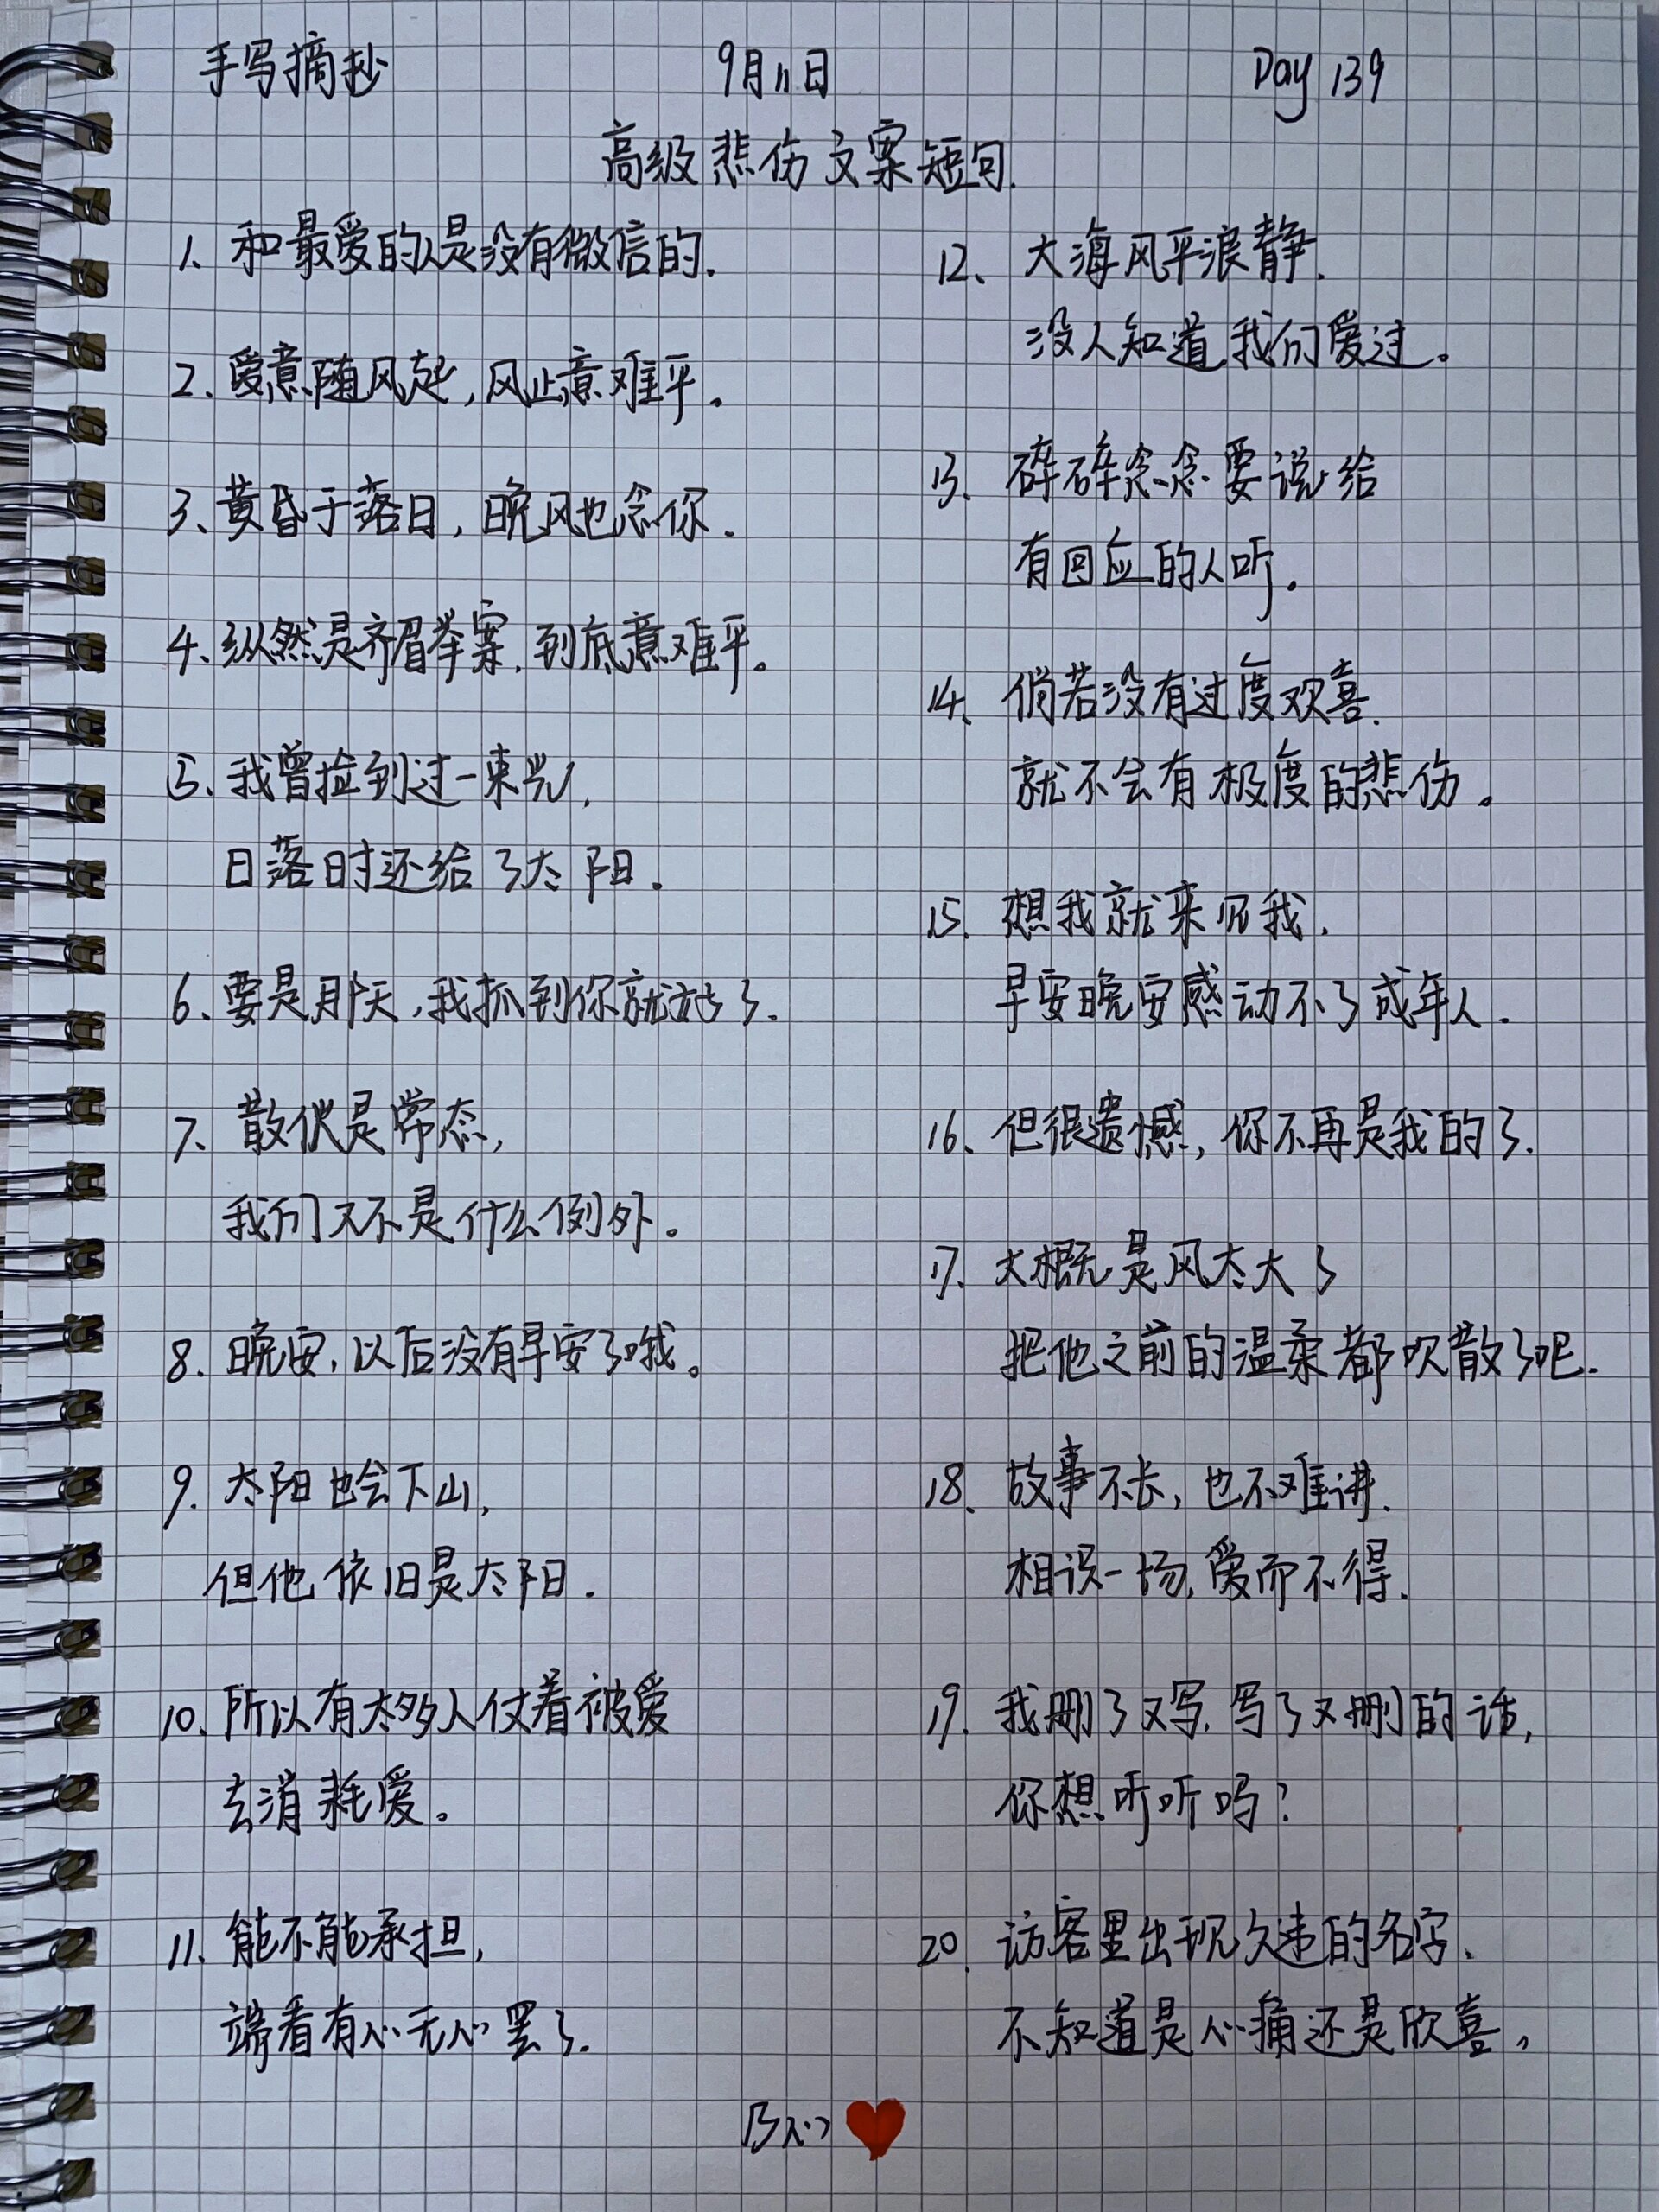 手写摘抄 9月11日 Day 139
高级悲伤文案短句.
1、和最爱的人是没有微信的.
2、爱意随风起,风止意难平。
3、黄昏于落日,晚风也念你.
4、纵然是齐眉举案,到底意难平。
5、我曾捡到过一束光,
日落时还给了太阳.
6、要是那天,我抓到你就好了.
7、散伙是常态,
我们又不是什么例外。
8、晚安,以后没有早安了哦。
9、太阳也会下山,
但他依旧是太阳.
10、所以有太多人仗着被爱
去消耗爱。
11、能不能承担,
端看有心无心罢了.
12、大海风平浪静.
没人知道我们爱过。
13、碎碎念念要说给
有回应的人听。
14、倘若没有过度欢喜.
就不会有极度的悲伤。
15、想我就来见我.
早安晚安感动不了成年人.
16、但很遗憾,你不再是我的了.
17、大概是风太大了
把他之前的温柔都吹散了吧.
18、故事不长,也不难讲.
相识一场,爱而不得.
19、我删了又写,写了又删的话,
你想听听吗?
20、访客里出现久违的名字、
不知道是心痛还是欣喜,